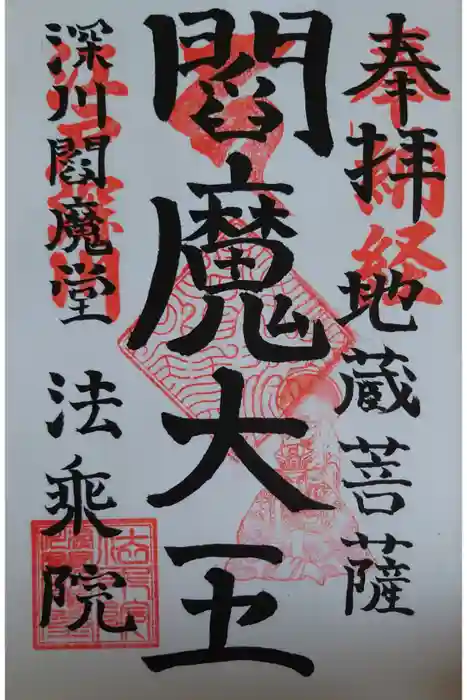 奉拝 地蔵菩薩
納経
閻魔大王
深川閻魔堂 法乗院